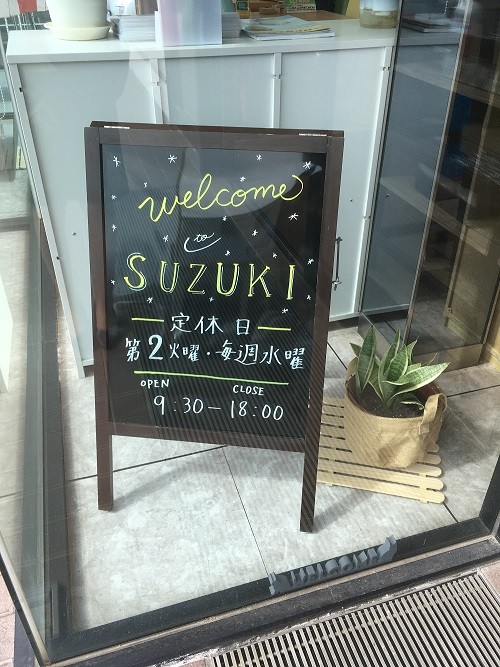 welcome
to
SUZUKI
定休日
第2火曜・毎週水曜
OPEN CLOSE
9:30-18:00